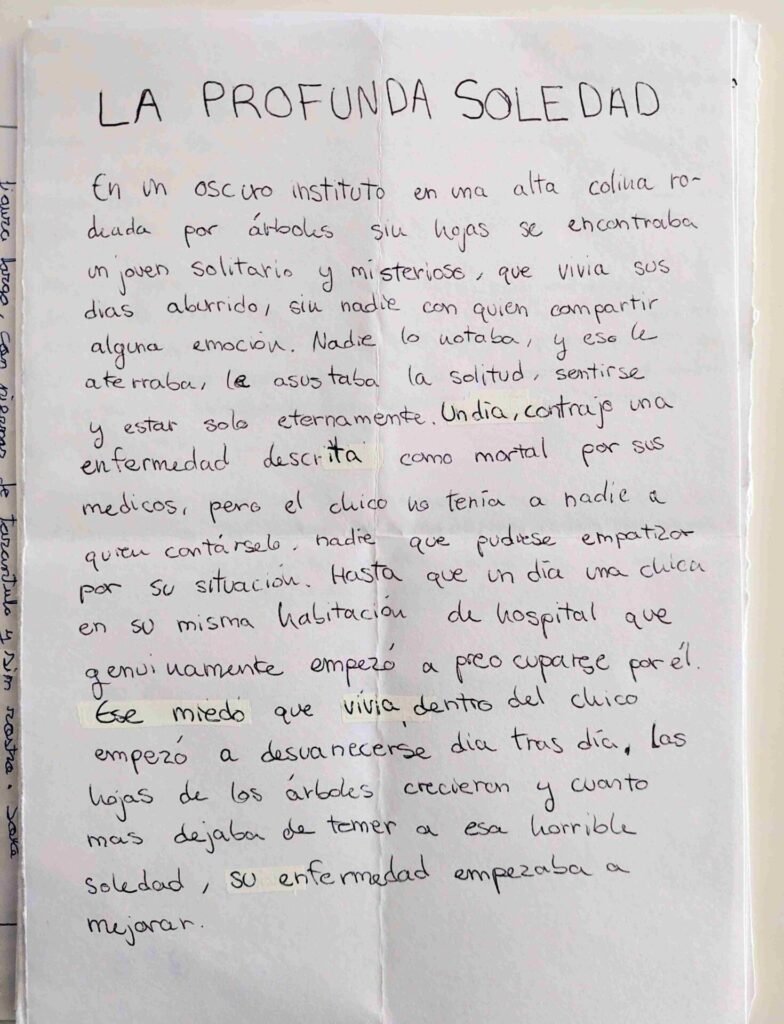 LA PROFUNDA SOLEDAD
En un oscuro instituto en una alta colina ro-
deada por árboles sin hojas se encontraba
un joven solitario y misterioso, que vivia sus
dias aburrido, sin nadie con quien compartir
alguna emoción. Nadie lo notaba, y eso le
aterraba, le asustaba la solitud, sentirse
y estar solo eternamente. Un día, contrajo una
enfermedad descrita como mortal por sus
medicos, pero el chico no tenía a nadie a
quien contárselo, nadie que pudiese empatizar
por su situación. Hasta que un día una chica
en su misma habitación de hospital que
genuinamente empezó a preocuparse por él.
Ese miedo que vivia dentro del chico
empezó a desvanecerse dia tras día, las
hojas de los árboles crecieron y cuanto
mas dejaba de temer a esa horrible
soledad, su enfermedad empezaba a
mejorar.
figura larga, con piernas de tarantula y sin rostro.